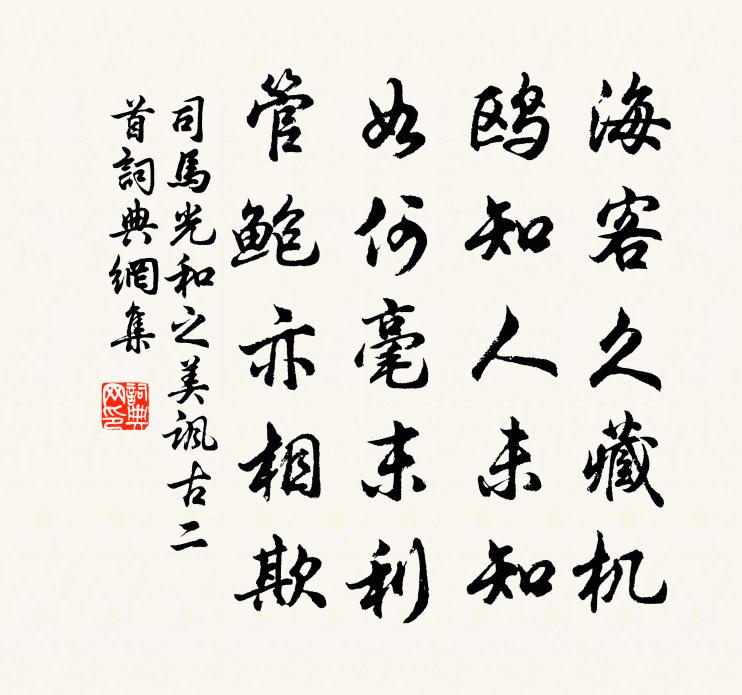 海客久藏机
鸥知人未知
如何毫末利
管鲍亦相欺
司馬光和之美諷古二
首詞典網集
詞典网印